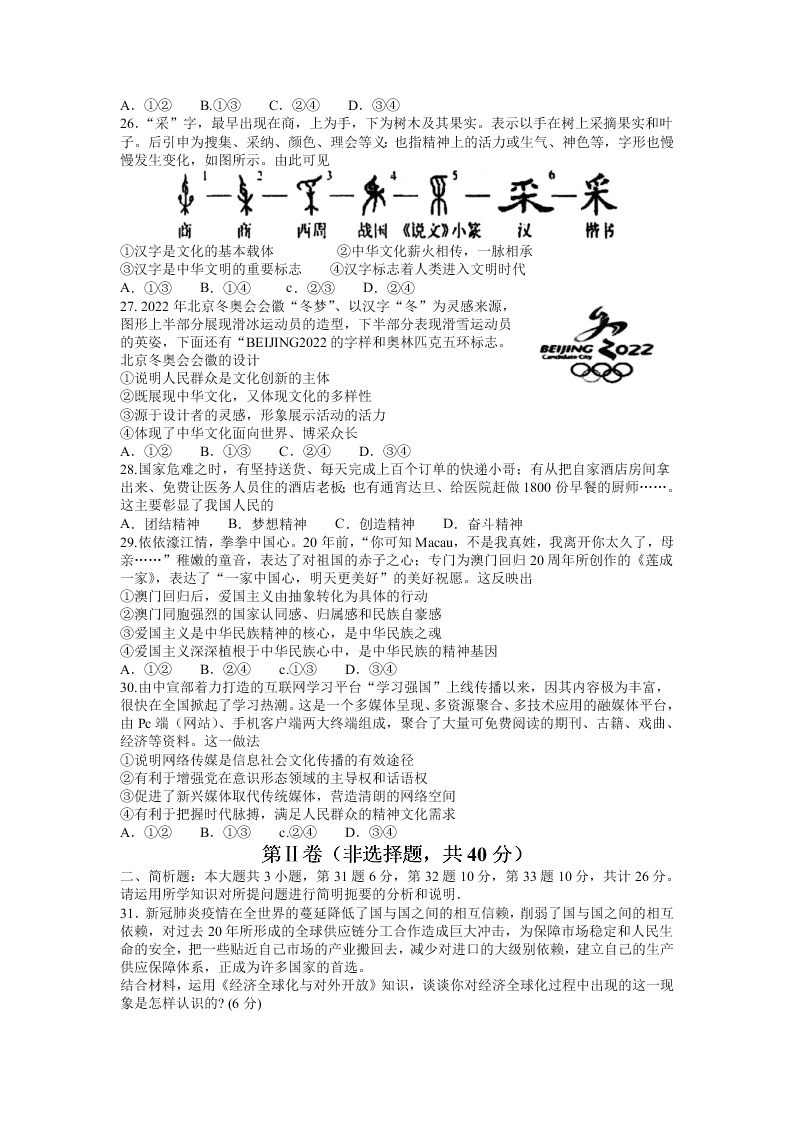 A．①② B.①③ C．②④ D．③④
26.“采”字，最早出现在商，上为手，下为树木及其果实。表示以手在树上采摘果实和叶
子。后引申为搜集、采纳、颜色、理会等义；也指精神上的活力或生气、神色等，字形也慢
慢发生变化，如图所示。由此可见
1 2 3 4 5 6
商 商 西周 战国 《说文》小篆 汉 楷书
①汉字是文化的基本载体 ②中华文化薪火相传，一脉相承
③汉字是中华文明的重要标志 ④汉字标志着人类进入文明时代
A．①③ B．①④ c．②③ D．②④
27. 2022 年北京冬奥会会徽“冬梦”、以汉字“冬”为灵感来源，
图形上半部分展现滑冰运动员的造型，下半部分表现滑雪运动员
的英姿，下面还有“BEIJING2022 的字样和奥林匹克五环标志。
北京冬奥会会徽的设计
BEIJING 2022
Candidate City
①说明人民群众是文化创新的主体
②既展现中华文化，又体现文化的多样性
③源于设计者的灵感，形象展示活动的活力
④体现了中华文化面向世界、博采众长
A．①② B．①③ C．②④ D．③④
28.国家危难之时，有坚持送货、每天完成上百个订单的快递小哥；有从把自家酒店房间拿
出来、免费让医务人员住的酒店老板；也有通宵达旦、给医院赶做 1800 份早餐的厨师……。
这主要彰显了我国人民的
A．团结精神 B．梦想精神 C．创造精神 D．奋斗精神
29.依依濠江情，拳拳中国心。20 年前，“你可知 Macau，不是我真姓，我离开你太久了，母
亲……”稚嫩的童音，表达了对祖国的赤子之心；专门为澳门回归 20 周年所创作的《莲成
一家》，表达了“一家中国心，明天更美好”的美好祝愿。这反映出
①澳门回归后，爱国主义由抽象转化为具体的行动
②澳门同胞强烈的国家认同感、归属感和民族自豪感
③爱国主义是中华民族精神的核心，是中华民族之魂
④爱国主义深深植根于中华民族心中，是中华民族的精神基因
A．①② B．②④ c.①③ D．③④
30.由中宣部着力打造的互联网学习平台“学习强国”上线传播以来，因其内容极为丰富，
很快在全国掀起了学习热潮。这是一个多媒体呈现、多资源聚合、多技术应用的融媒体平台，
由 Pc 端（网站）、手机客户端两大终端组成，聚合了大量可免费阅读的期刊、古籍、戏曲、
经济等资料。这一做法
①说明网络传媒是信息社会文化传播的有效途径
②有利于增强党在意识形态领域的主导权和话语权
③促进了新兴媒体取代传统媒体，营造清朗的网络空间
④有利于把握时代脉搏，满足人民群众的精神文化需求
A．①② B．①③ c.②④ D．③④
第Ⅱ卷（非选择题，共 40 分）
二、简析题：本大题共 3 小题，第 31 题 6 分，第 32 题 10 分，第 33 题 10 分，共计 26 分。
请运用所学知识对所提问题进行简明扼要的分析和说明．
31．新冠肺炎疫情在全世界的蔓延降低了国与国之间的相互信赖，削弱了国与国之间的相互
依赖，对过去 20 年所形成的全球供应链分工合作造成巨大冲击，为保障市场稳定和人民生
命的安全，把一些贴近自己市场的产业搬回去，减少对进口的大级别依赖，建立自己的生产
供应保障体系，正成为许多国家的首选。
结合材料，运用《经济全球化与对外开放》知识，谈谈你对经济全球化过程中出现的这一现
象是怎样认识的? (6 分)